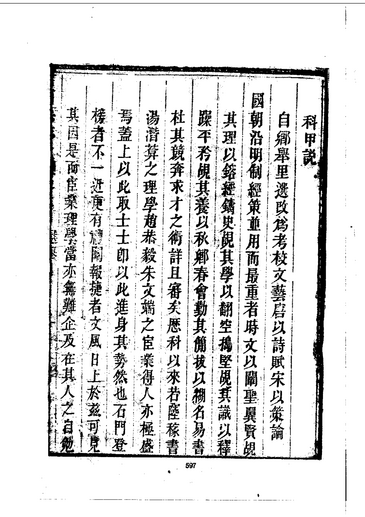 科甲說
自鄉舉里選改爲考校文藝唐以詩賦宋以策論
國朝沿明制經策並用而最重者時文以闡聖翼賢覘
其理以鎔經鑄史覘其學以翻空搗堅覘其識以釋
躁平矜覘其養以秋鄉春會勤其簡拔以糊名易書
杜其競奔求才之術詳且審矣歷科以來若陸稼書
湯潛菴之理學趙恭毅朱文端之宦業得人亦極盛
焉蓋上以此取士士卽以此進身其勢然也石門登
榜者不一近更有聯闈報捷者文風日上於茲可見
其因是而宦業理學當亦無難企及在其人之自勉
597